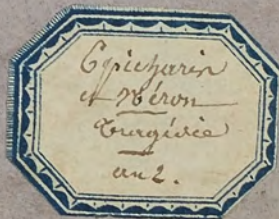 Epicharis
et Néron
Tragédie
an 2.